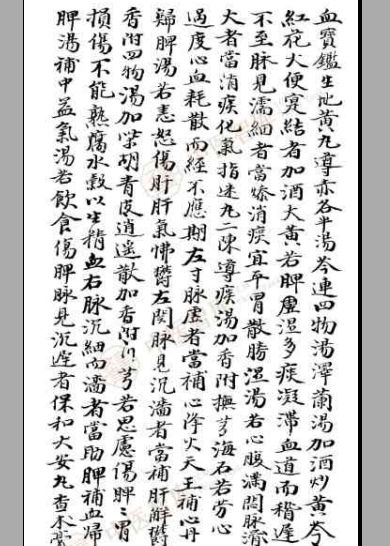 血寶鑑生地黃丸導赤各半湯芩連四物湯澤蘭湯加酒炒黃芩
紅花大便寔結者加酒大黃若脾虛湿多痰凝滯血道而稽遲
不至脉見濡細者當燥消痰宜平胃散勝湿湯若心腹滿悶脉滑
大者當消痰化氣指迷丸二陳導痰湯加香附撫芎海石若劳心
過度心血耗散而經不應期左寸脉虛者當補心降火天王補心丹
歸脾湯若恚怒傷肝肝氣怫欝左関脉見沉濇者當補肝解欝
香附四物湯加柴胡青皮逍遥散加香附川芎若思慮傷脾〻胃
損傷不能熟腐水穀以生精血右脉沉細而濇者當助脾補血歸
脾湯補中益氣湯若飲食傷脾脉見沉遲者保和大安丸查术